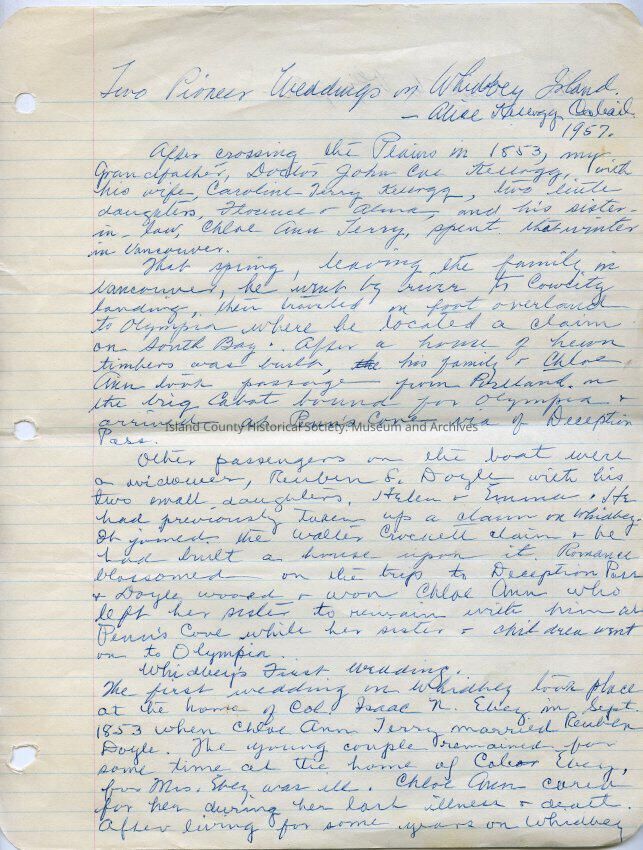 Two Pioneer Weddings on Whidbey Island.
— Alice Kellogg Cahail.
1957.
After crossing the Plains in 1853, my
Grandfather, Doctor John Coe Kellogg, with
his wife, Caroline Terry Kellogg, two little
daughters, Florence & Alma, and his sister-
in-law, Chloe Ann Terry, spent that winter
in Vancouver.
That spring, leaving the family in
Vancouver, he went by river to Cowlitz
landing, then traveled on foot overland
to Olympia where he located a claim
on South Bay. After a house of hewn
timbers was built, the his family & Chloe
Ann took passage from Portland on
the brig Cabot bound for Olympia &
arrived at Penn's Cove via of Deception
Island County Historical Society, Museum and Archives
Pass.
Other passengers on the boat were
a widower, Reuben S. Doyle with his
two small daughters, Helen & Emma. He
had previously taken up a claim on Whidbey.
It joined the Walter Crockett claim & he
had built a house upon it. Romance
blossomed on the trip to Deception Pass
& Doyle wooed & won Chloe Ann who
left her sister to remain with him at
Penn's Cove while her sister & children went
on to Olympia.
Whidbey's First Wedding.
The first wedding on Whidbey took place
at the home of Col. Isaac N. Ebey in Sept.
1853 when Chloe Ann Terry married Reuben
Doyle. The young couple remained for
some time at the home of Ebey,
for Mrs. Ebey was ill. Chloe Ann cared
for her during her last illness & death.
After living for some years on Whidbey